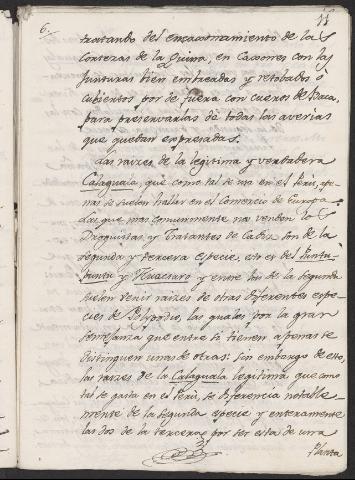 6. 11
tratando del encaxonamiento de las
Cortezas de la Quina, en Caxones con las
Junturas bien embreadas y retobados ó
cubiertos por de fuera con cueros de Baca,
para preservarlas de todas las averias
que quedan expresadas.
Las raizes de la legitima y verdadera
Calaguala, que como tal se usa en el Perú, ape-
nas se suelen hallar en el Comercio de Europa.
Las que mas comunmente na venden los
Droguistas y Tratantes de Cadiz son de la
segunda y tercera especie, esto es del Puntu-
puntu y Huacsaro y entre las de la segunda
suelen venir raizes de otras diferentes espe-
cies de Polypodio, las quales por la gran
semejanza que entre si tienen apenas se
distinguen unas de otras: sin embargo de esto,
las raizes de la Calaguala legitima, que como
tal se gasta en el Perú, se diferencia notable-
mente de la segunda especie y enteramente
las dos de la tercera, por ser esta de una
Planta